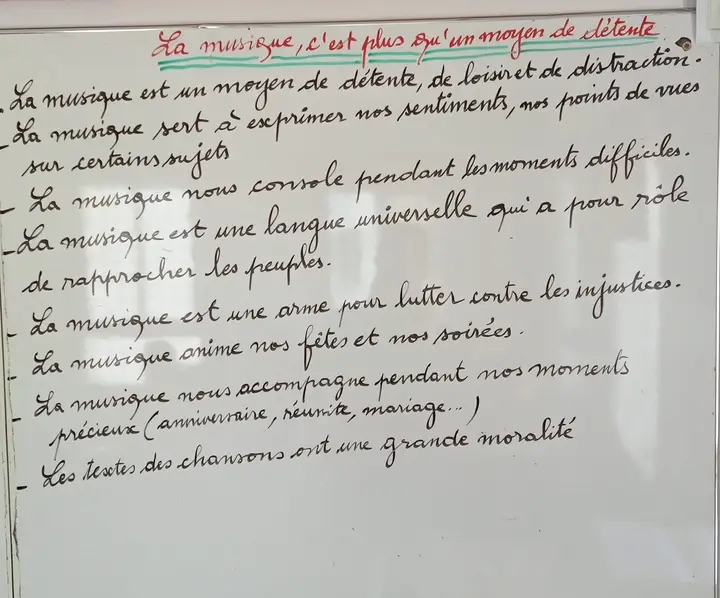 La musique, c'est plus qu'un moyen de détente
- La musique est un moyen de détente, de loisir et de distraction.
- La musique sert à exprimer nos sentiments, nos points de vues
sur certains sujets
- La musique nous console pendant les moments difficiles.
- La musique est une langue universelle qui a pour rôle
de rapprocher les peuples.
- La musique est une arme pour lutter contre les injustices.
- La musique anime nos fêtes et nos soirées.
- La musique nous accompagne pendant nos moments
précieux (anniversaire, réussite, mariage...)
- Les textes des chansons ont une grande moralité